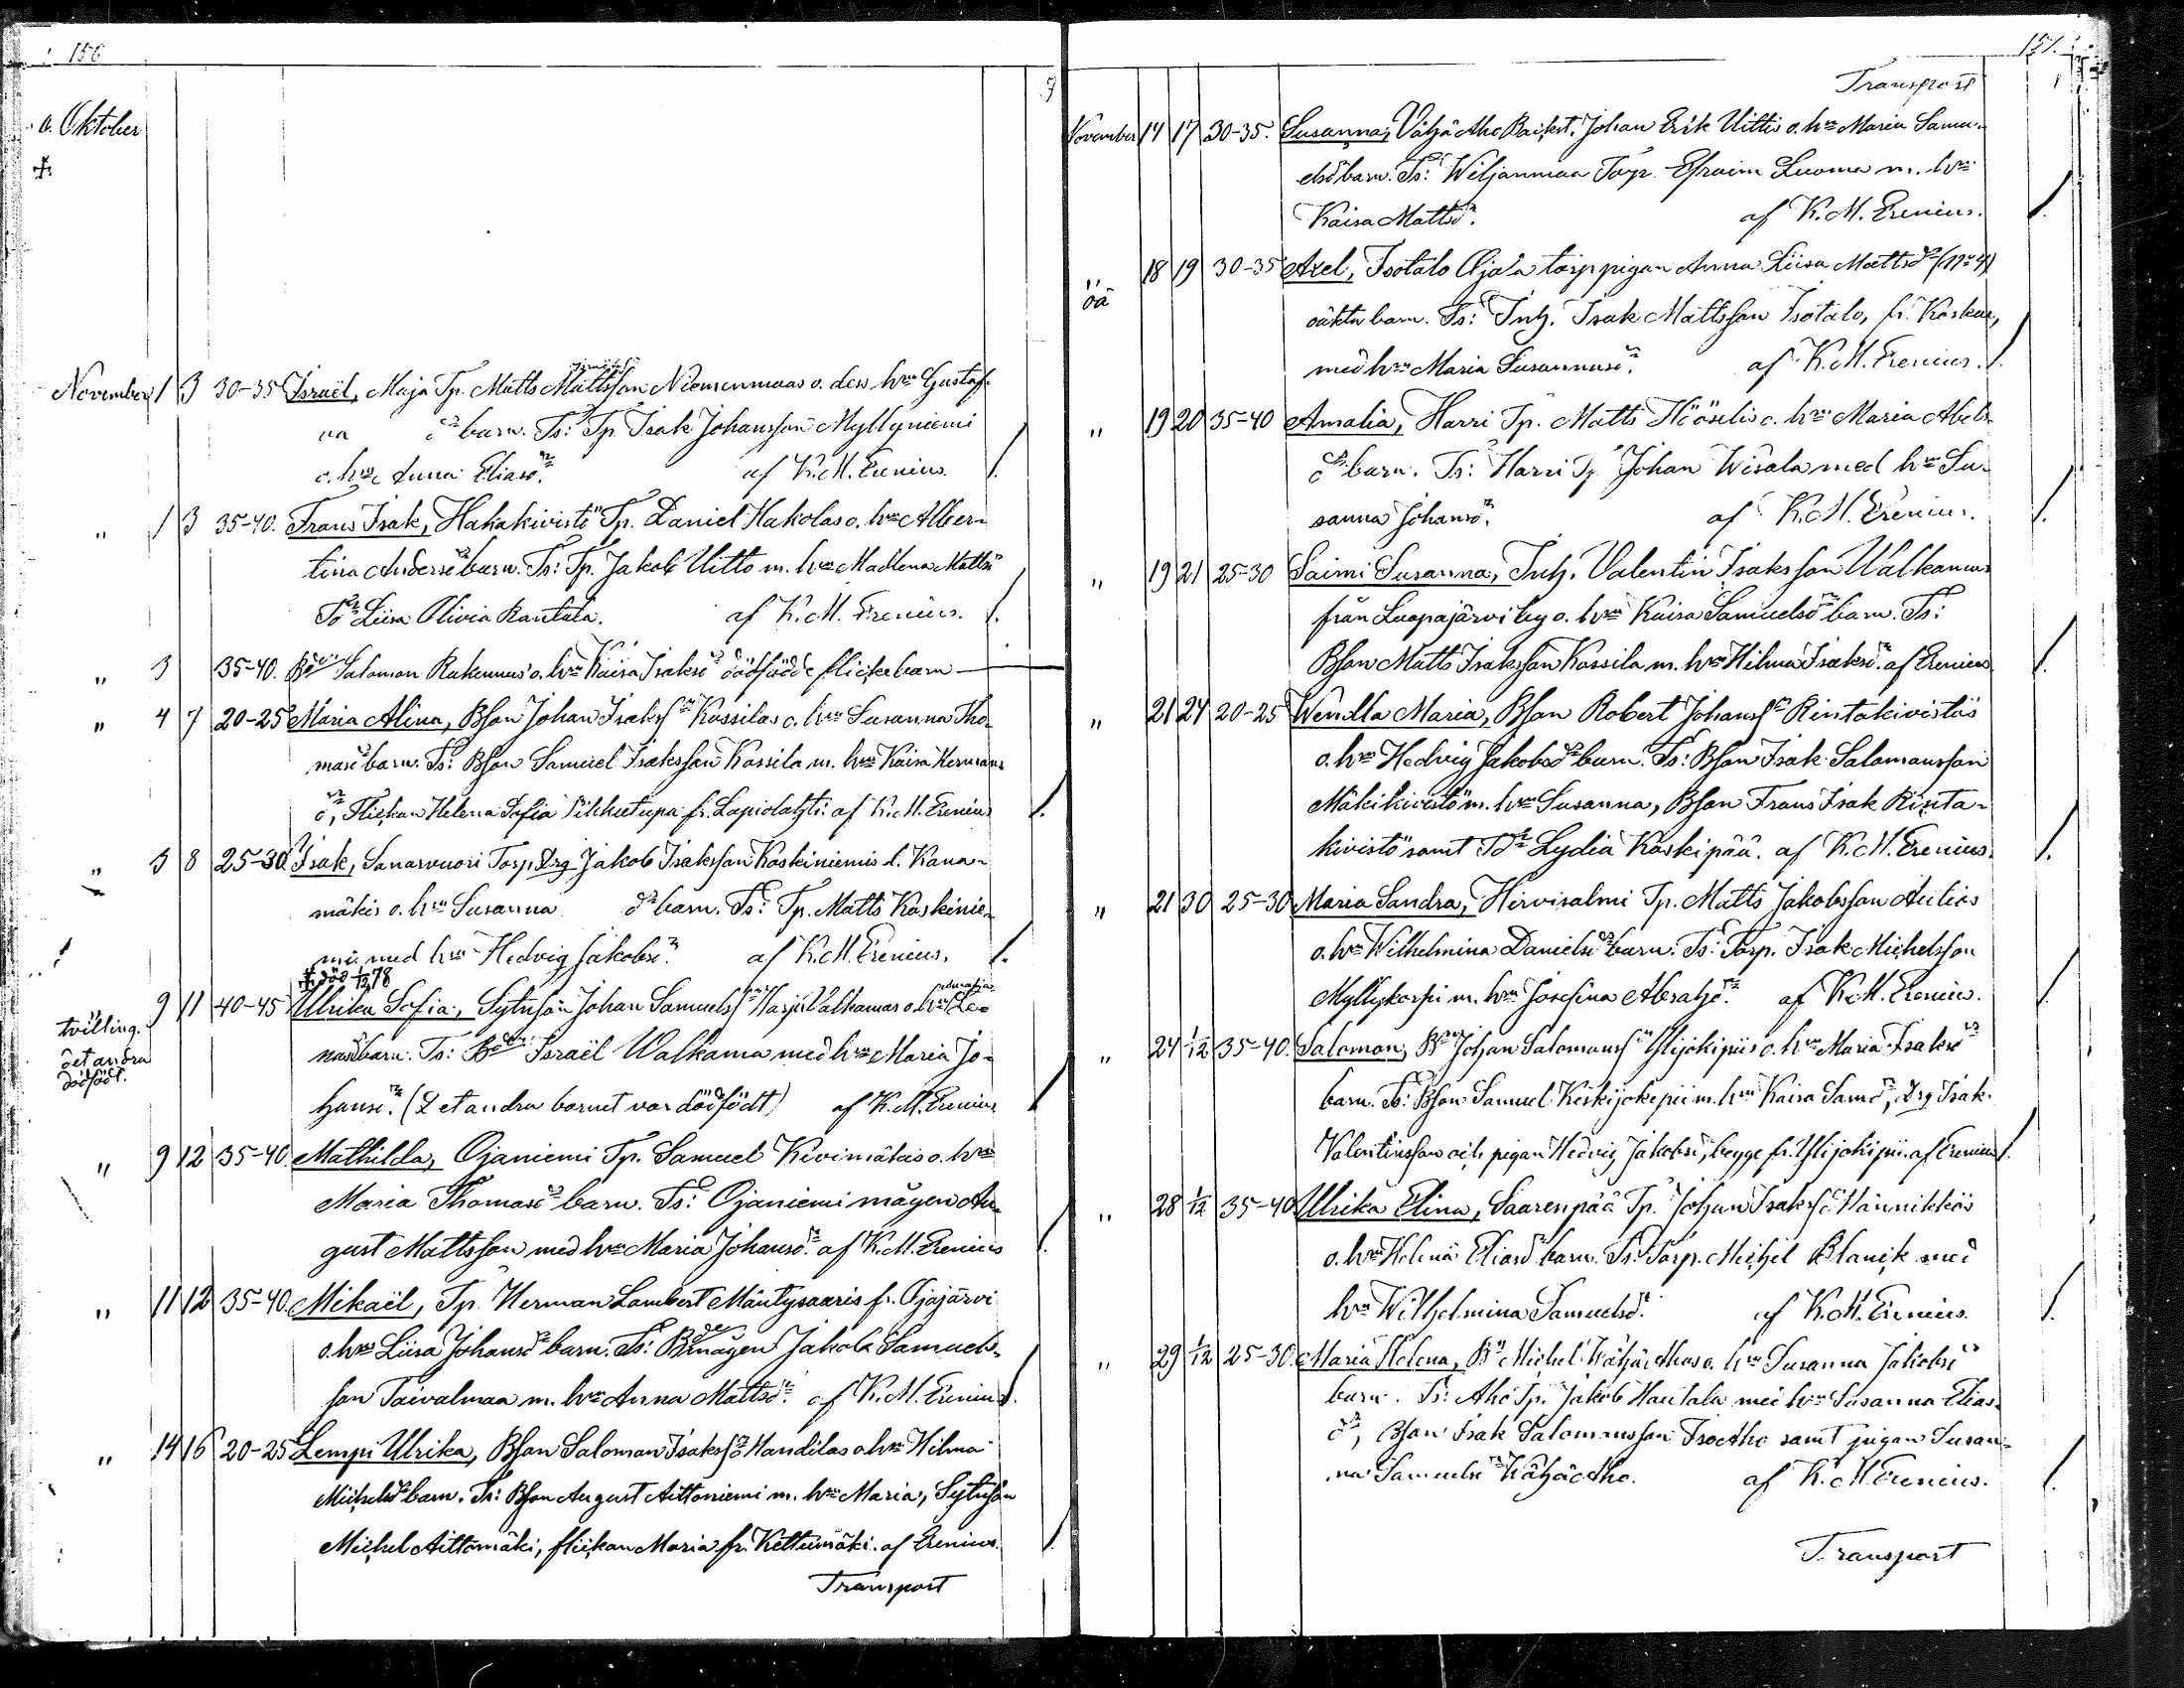 156
Oktober
November 1 3 30-35 Israël, Maja Tp. Matts Mattsson Niemenmaas o. dess hru Gustaf-
va dr barn. Ts: Tp. Isak Johansson Myllyniemi
o. hru Anna Eliasdr. af K. M. Erenius.
" 1 3 35-40. Frans Isak, Hakakivistö Tp. Daniel Hakolas o. hru Alber-
tina Andersdr barn. Ts: Tp. Jakob Uitto m. hru Madlena Mattsdr
Tdr Liisa Olivia Rantala. af K. M. Erenius.
" 3 35-40. Bdn Salomon Rakennus o. hru Kaisa Isaksdr dödfödde flickebarn
" 4 7 20-25 Maria Alina, Bson Johan Isakssn Kassilas o. hru Susanna Tho-
masdr barn. Ts: Bson Samuel Isaksson Kassila m. hru Kaisa Hermans
dr, Flickan Helena Sofia Pihkutupa fr. Lapiolahti. af K. M. Erenius
" 5 8 25-30. Isak, Sanarvuori Torp. Drg Jakob Isaksson Koskiniemis l. Kana-
mäkis o. hru Susanna dr barn. Ts: Tp. Matts Koskinie-
mi med hru Hedvig Jakobsdr. af K. M. Erenius.
död 1/12 78
9 11 40-45 Ulrika Sofia, Sytnsson Johan Samuelssn Harju Valkamas o. hru Le-
nasdr barn. Ts: Bdn Israël Walkama med hru Maria Jo-
hansdr. (Det andra barnet var dödfödt) af K. M. Erenius
tvilling.
det andra
dödfödt.
" 9 12 35-40. Mathilda, Ojaniemi Tp. Samuel Kivimäkis o. hru
Maria Thomasdr barn. Ts: Ojaniemi mågen Au-
gust Mattsson med hru Maria Johansdr. af K. M. Erenius
" 11 12 35-40. Mikaël, Tp. Herman Lambert Mäntysaaris fr. Ojajärvi
o. hru Liisa Johansdr barn. Ts: Bdemågen Jakob Samuels-
son Taivalmaa m. hru Anna Mattsdr. af K. M. Erenius.
" 14 16 20-25 Lempi Ulrika, Bson Saloman Isakssn Handilas o. hru Hilma
Michelsdr barn. Ts: Bson August Aittoniemi m. hru Maria, Sytnson
Michel Aittomäki, flickan Maria fr. Kettumäki. af Erenius.
Transport
157.
Transport
November 14 17 30-35. Susanna, Vähä Aho Backst. Johan Erik Uittis o. hru Maria Samu-
elsdr barn. Ts: Wiljanmaa Torp. Efraim Luoma m. hru
Kaisa Mattsdr. af K. M. Erenius.
" oä 18 19 30-35 Axel, Isotalo Oja'a torppigan Anna Liisa Mattsdr (No 4)
oäkta barn. Ts: Inh. Isak Mattsson Isotalo, fr. Koskue,
med hru Maria Susannasdr. af K. M. Erenius.
" 19 20 35-40 Amalia, Harri Tp. Matts Hööselis o. hru Maria Abels-
dr barn. Ts: Harri Tp Johan Wisala med hru Su-
sanna Johansdr. af K. M. Erenius.
" 19 21 25-30 Saimi Susanna, Inh. Valentin Isaksson Walkamas
från Luopajärvi by o. hru Kaisa Samuelsdr barn. Ts:
Bson Matts Isaksson Kassila m. hru Hilma Isaksdr. af Erenius
" 21 24 20-25 Wendla Maria, Bson Robert Johanssn Rintakivistös
o. hru Hedvig Jakobsdr barn. Ts: Bson Isak Salomonsson
Mäkikivistö m. hru Susanna, Bson Frans Isak Rinta-
kivistö samt Tdr Lydia Koskipää. af K. M. Erenius.
" 21 30 25-30 Maria Sandra, Hirvisalmi Tp. Matts Jakobsson Autios
o. hru Wilhelmina Danielsdr barn. Ts: Torp. Isak Michelsson
Myllykorpi m. hru Josefina Abrahsdr. af K. M. Erenius.
" 24 1/12 35-40. Saloman, Bdn Johan Salomanssn Ylijokipiis o. hru Maria Isaksdr
barn. Ts: Bson Samuel Keskijokipii m. hru Kaisa Samdr, Drg Isak
Valentinsson och pigan Hedvig Jakobsdr, begge fr. Ylijokipii. af Erenius.
" 28 1/12 35-40 Ulrika Elina, Saarenpää Tp. Johan Isakssn Männikkös
o. hru Helena Eliasdr barn. Ts: Torp. Michel Blanck med
hru Wilhelmina Samuelsdr. af K. M. Erenius.
" 29 1/12 25-30. Maria Helena, Bdn Michel Vähä Ahos o. hru Susanna Jakobsdr
barn. Ts: Aho Tp. Jakob Hautala med hru Susanna Elias-
dr, Bson Isak Salomonsson Iso Aho samt pigan Susan-
na Samuelsdr Vähä Aho. af K. M. Erenius.
Transport